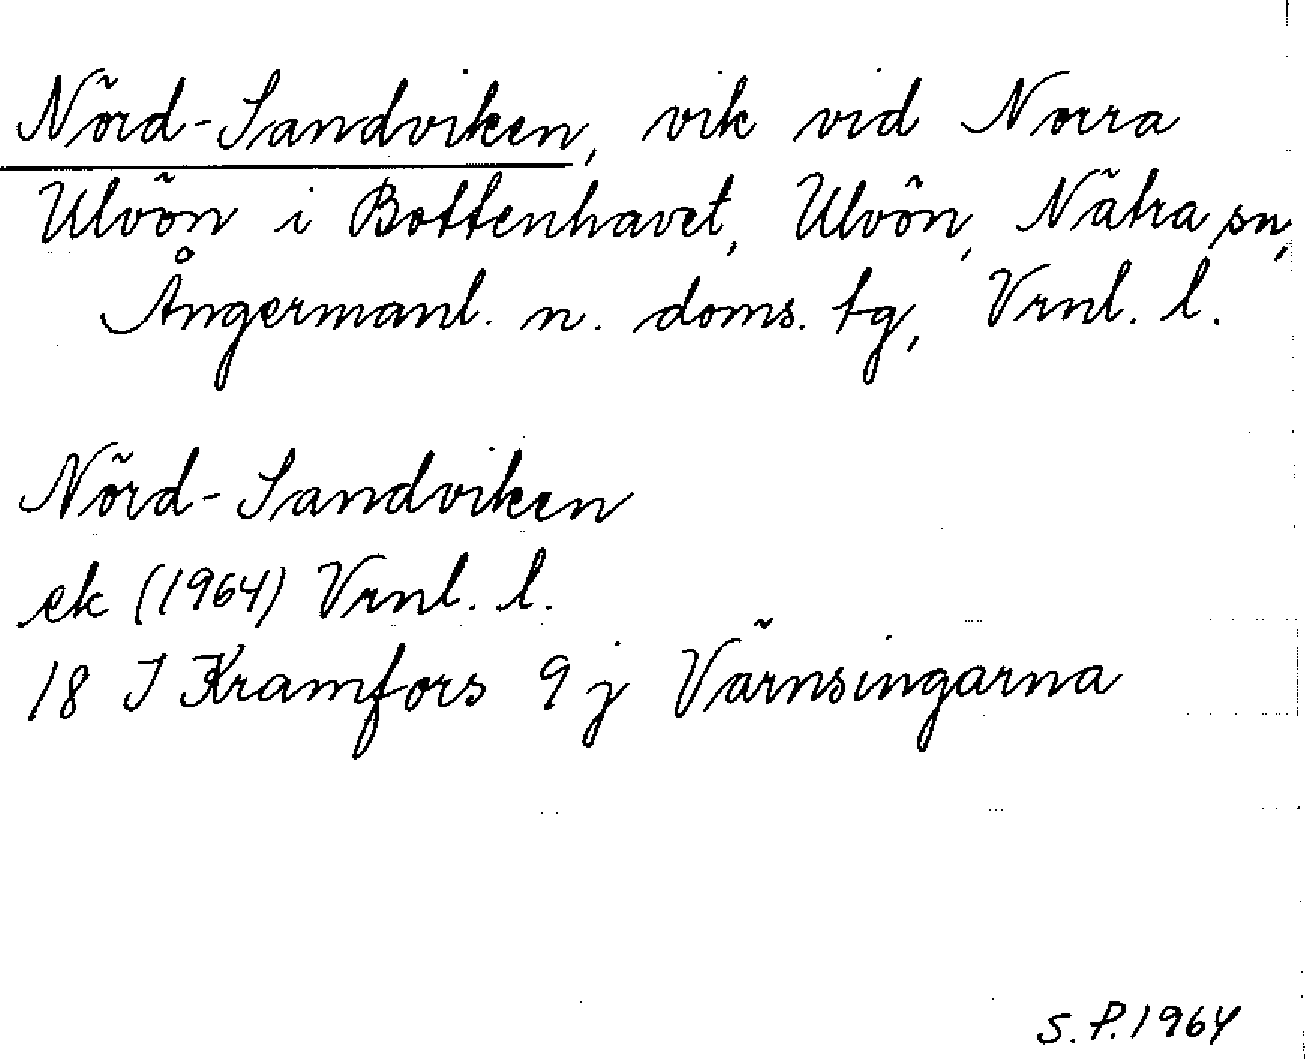 Nörd-Sandviken, vik vid Norra
Ulvön i Bottenhavet, Ulvön, Nätra sn,
Ångermanl. n. doms. tg, Vrnl. l.
Nörd-Sandviken
ek (1964) Vrnl. l.
18 I Kramfors 9 j Värnsingarna
S.P. 1964